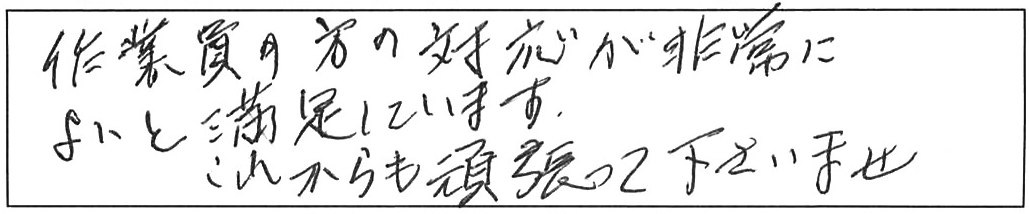 作業員の方の対応が非常に
よいと満足しています。
これからも頑張って下さいませ